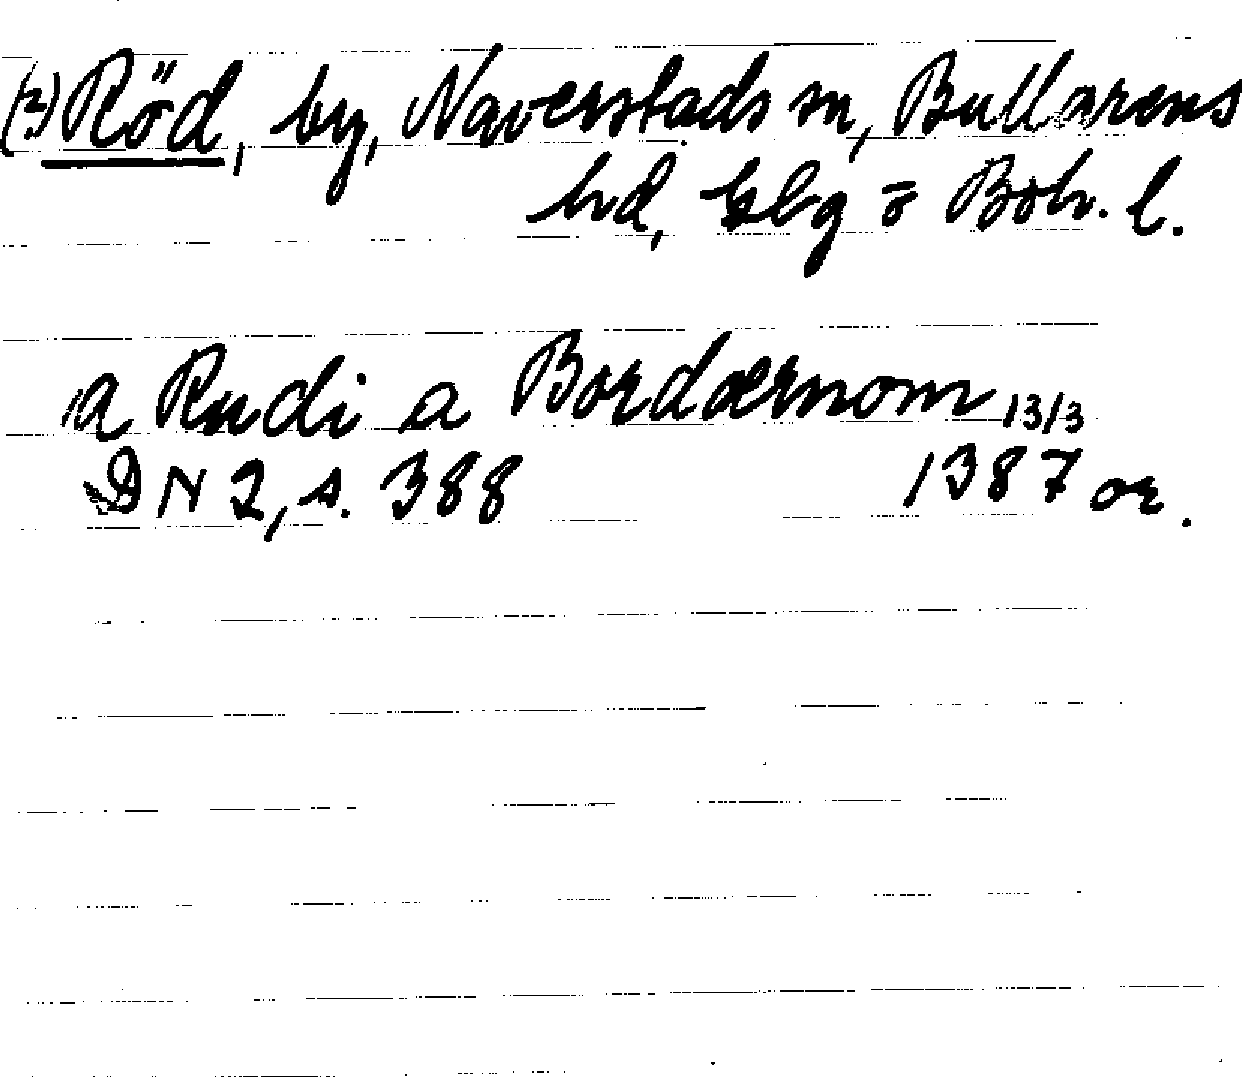 (?) Röd, by, Naverstads sn, Bullarens
hd, Gbg o Boh. l.
a Rudi a Bordærnom 13/3
DN 2, s. 388 1387 or.